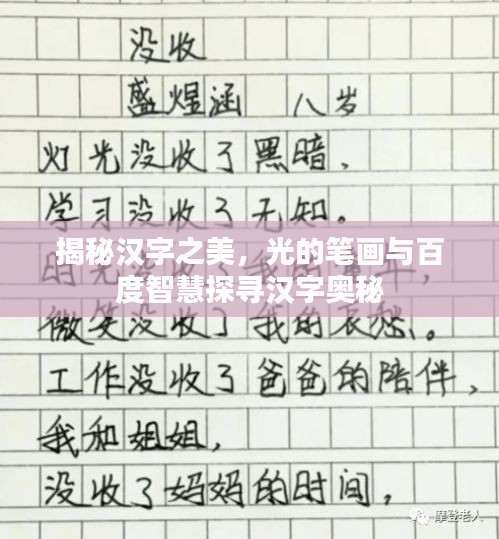 没收
盛煜涵 八岁
灯光没收了黑暗,
学习没收了无知。
揭秘汉字之美,光的笔画与百
度智慧探寻汉字奥秘
微笑没收了我的哀愁。
工作没收了爸爸的陪伴,
我和姐姐,
没收了妈妈的时间,
摩登老人